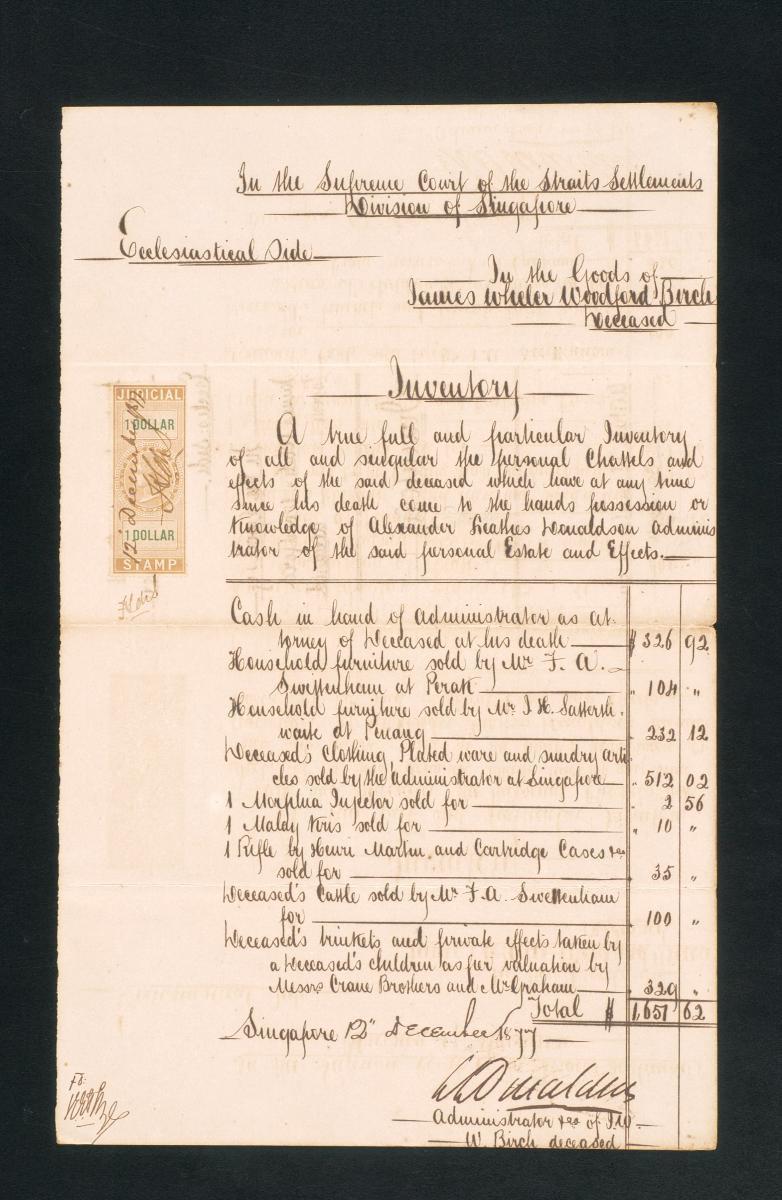 In the Supreme Court of the Straits Settlements
Division of Singapore
Ecclesiastical Side
In the Goods of
James Wheler Woodford Birch
Deceased
Inventory
JUDICIAL
1 DOLLAR
12" December 1877
1 DOLLAR
STAMP
A true full and particular Inventory
of all and singular the personal Chattels and
effects of the said deceased which have at any time
since his death come to the hands possession or
Knowledge of Alexander Leathes Donaldson Adminis
trator of the said personal Estate and Effects.
Cash in hand of Administrator as at
torney of Deceased at his death $ 326 92
Household furniture sold by Mr F. A.
Swettenham at Perak " 104 "
Household furniture sold by Mr I. H. Satterth
waite at Penang " 232 12
Deceased's Clothing, Plated ware and sundry arti
cles sold by the Administrator at Singapore " 512 02
1 Morphia Injector sold for " 2 56
1 Malay Kris sold for " 10 "
1 Rifle by Henri Martin and Cartridge Cases &ca
sold for " 35 "
Deceased's Cattle sold by Mr F. A. Swettenham
for " 100 "
Deceased's trinkets and private effects taken by
a Deceased's children as per valuation by
Messrs Crane Brothers and Mr Graham " 329 "
Total $ 1,651 62
Singapore 12" December 1877
Donaldson
Administrator &ca of J. W.
W. Birch deceased